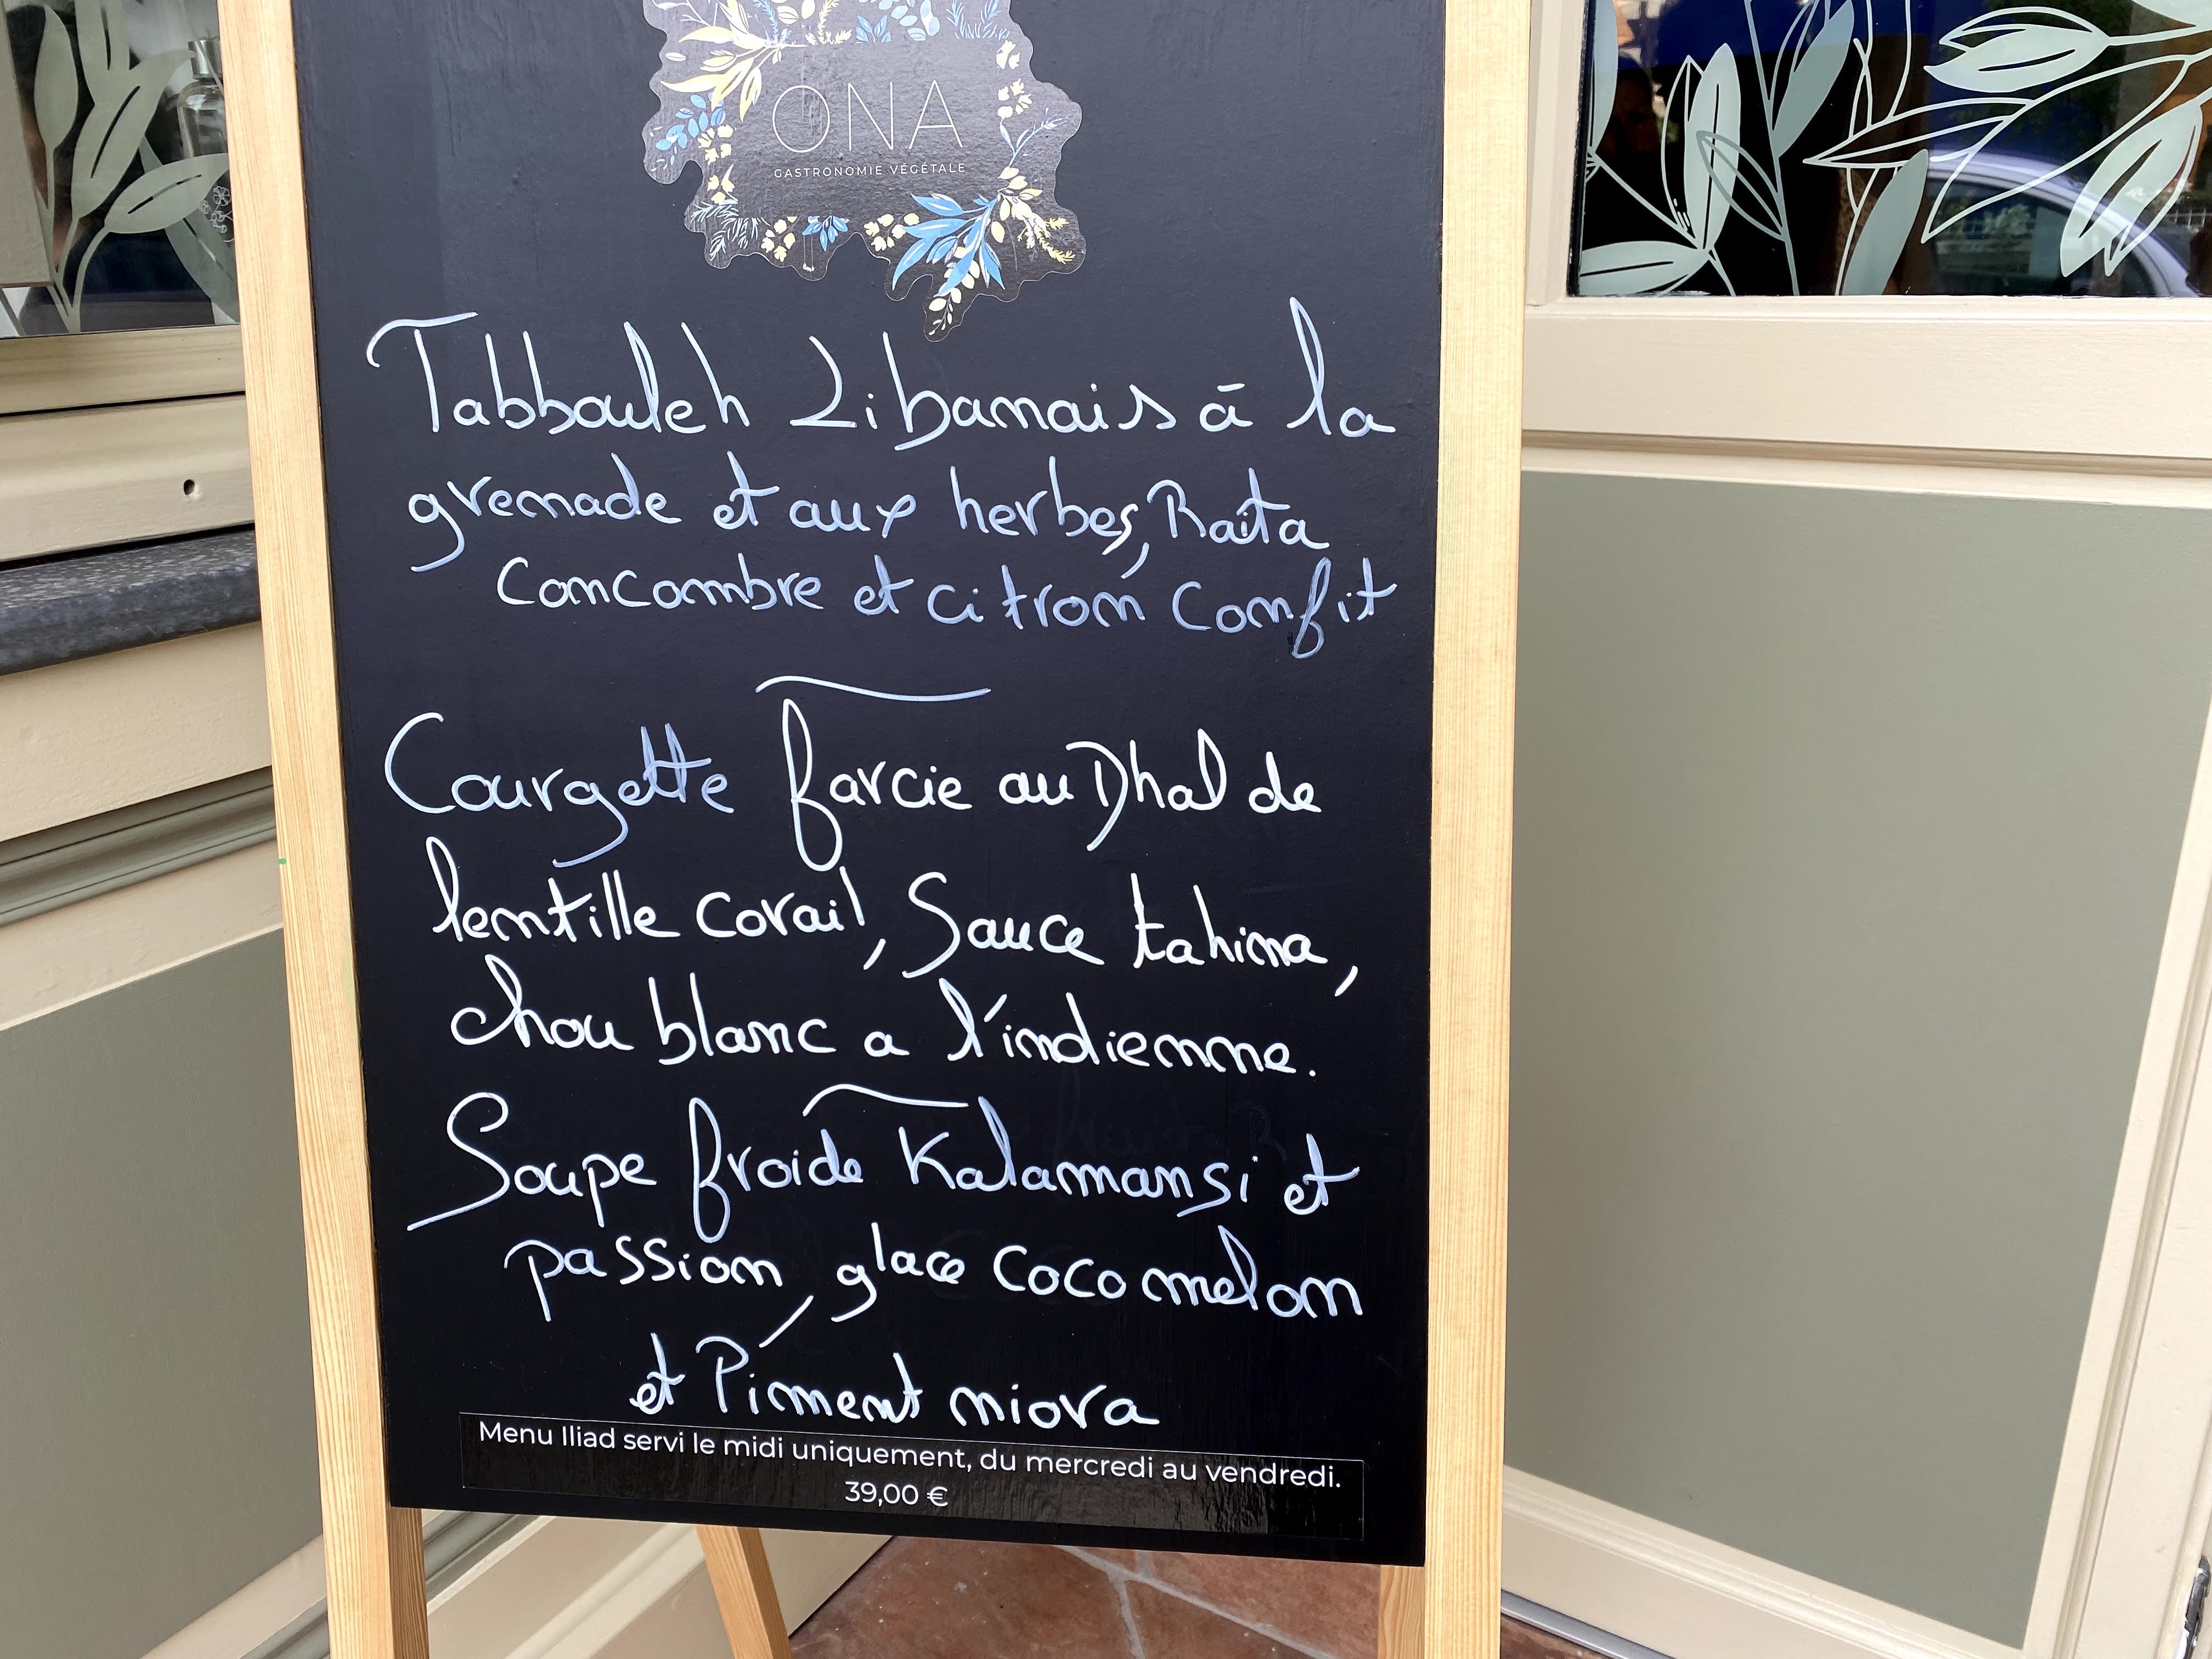 ONA
GASTRONOMIE VÉGÉTALE
Tabbouleh Libanais à la
grenade et aux herbes, Raïta
Concombre et citron Confit
Courgette farcie au Dhal de
lentille corail, Sauce tahina,
chou blanc a l'indienne.
Soupe froide Kalamansi et
passion, glace coco melon
et Piment niora
Menu Iliad servi le midi uniquement, du mercredi au vendredi.
39,00 €